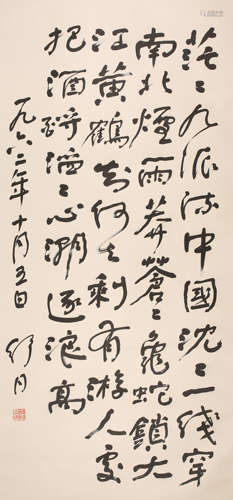 茫〻九派流中國沈〻一线穿
南北煙雨莽蒼〻龜蛇鎖大
江黄鶴知何去剩有游人處
把酒酹滔〻心潮逐浪高
一九六二年十月五日
舒同